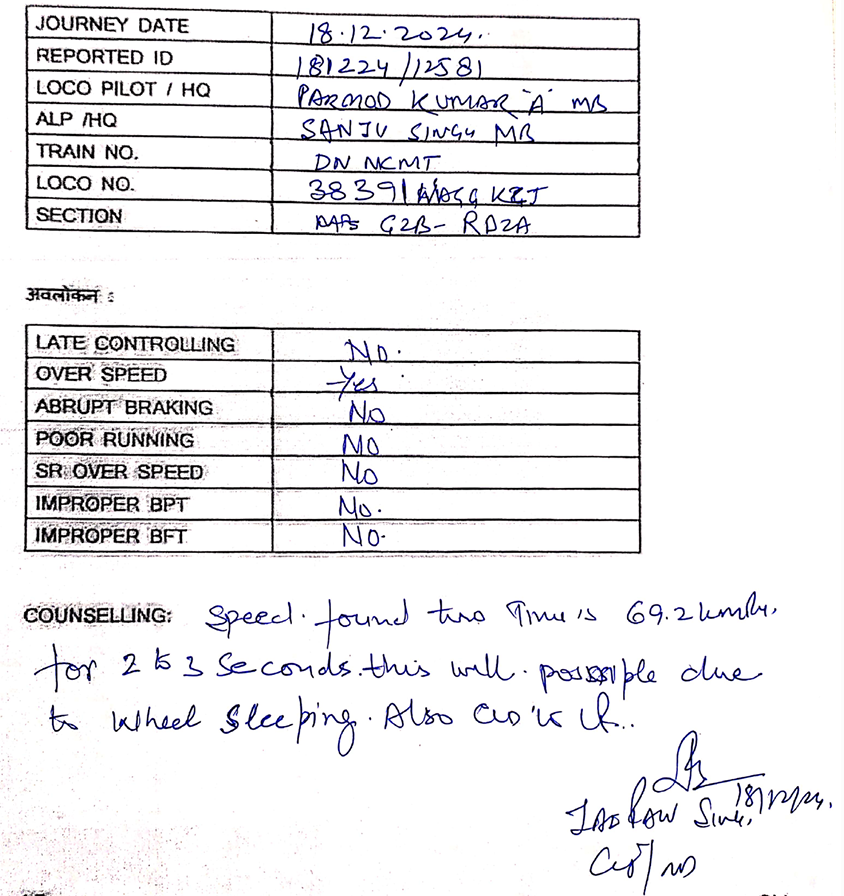 JOURNEY DATE 18.12.2024.
REPORTED ID 181224/12581
LOCO PILOT / HQ PARMOD KUMAR "A" MB
ALP /HQ SANJU SINGH MB
TRAIN NO. DN NCMT
LOCO NO. 38391 KZJ
SECTION GZB- ROZA
अवलोकन :
LATE CONTROLLING NO.
OVER SPEED Yes
ABRUPT BRAKING NO
POOR RUNNING NO
SR OVER SPEED NO
IMPROPER BPT NO.
IMPROPER BFT NO.
COUNSELLING: Speed. found two Time is 69.2 kmph.
for 2 to 3 Seconds. this will. possible due
to wheel sleeping. Also
18/12/24.
Singh